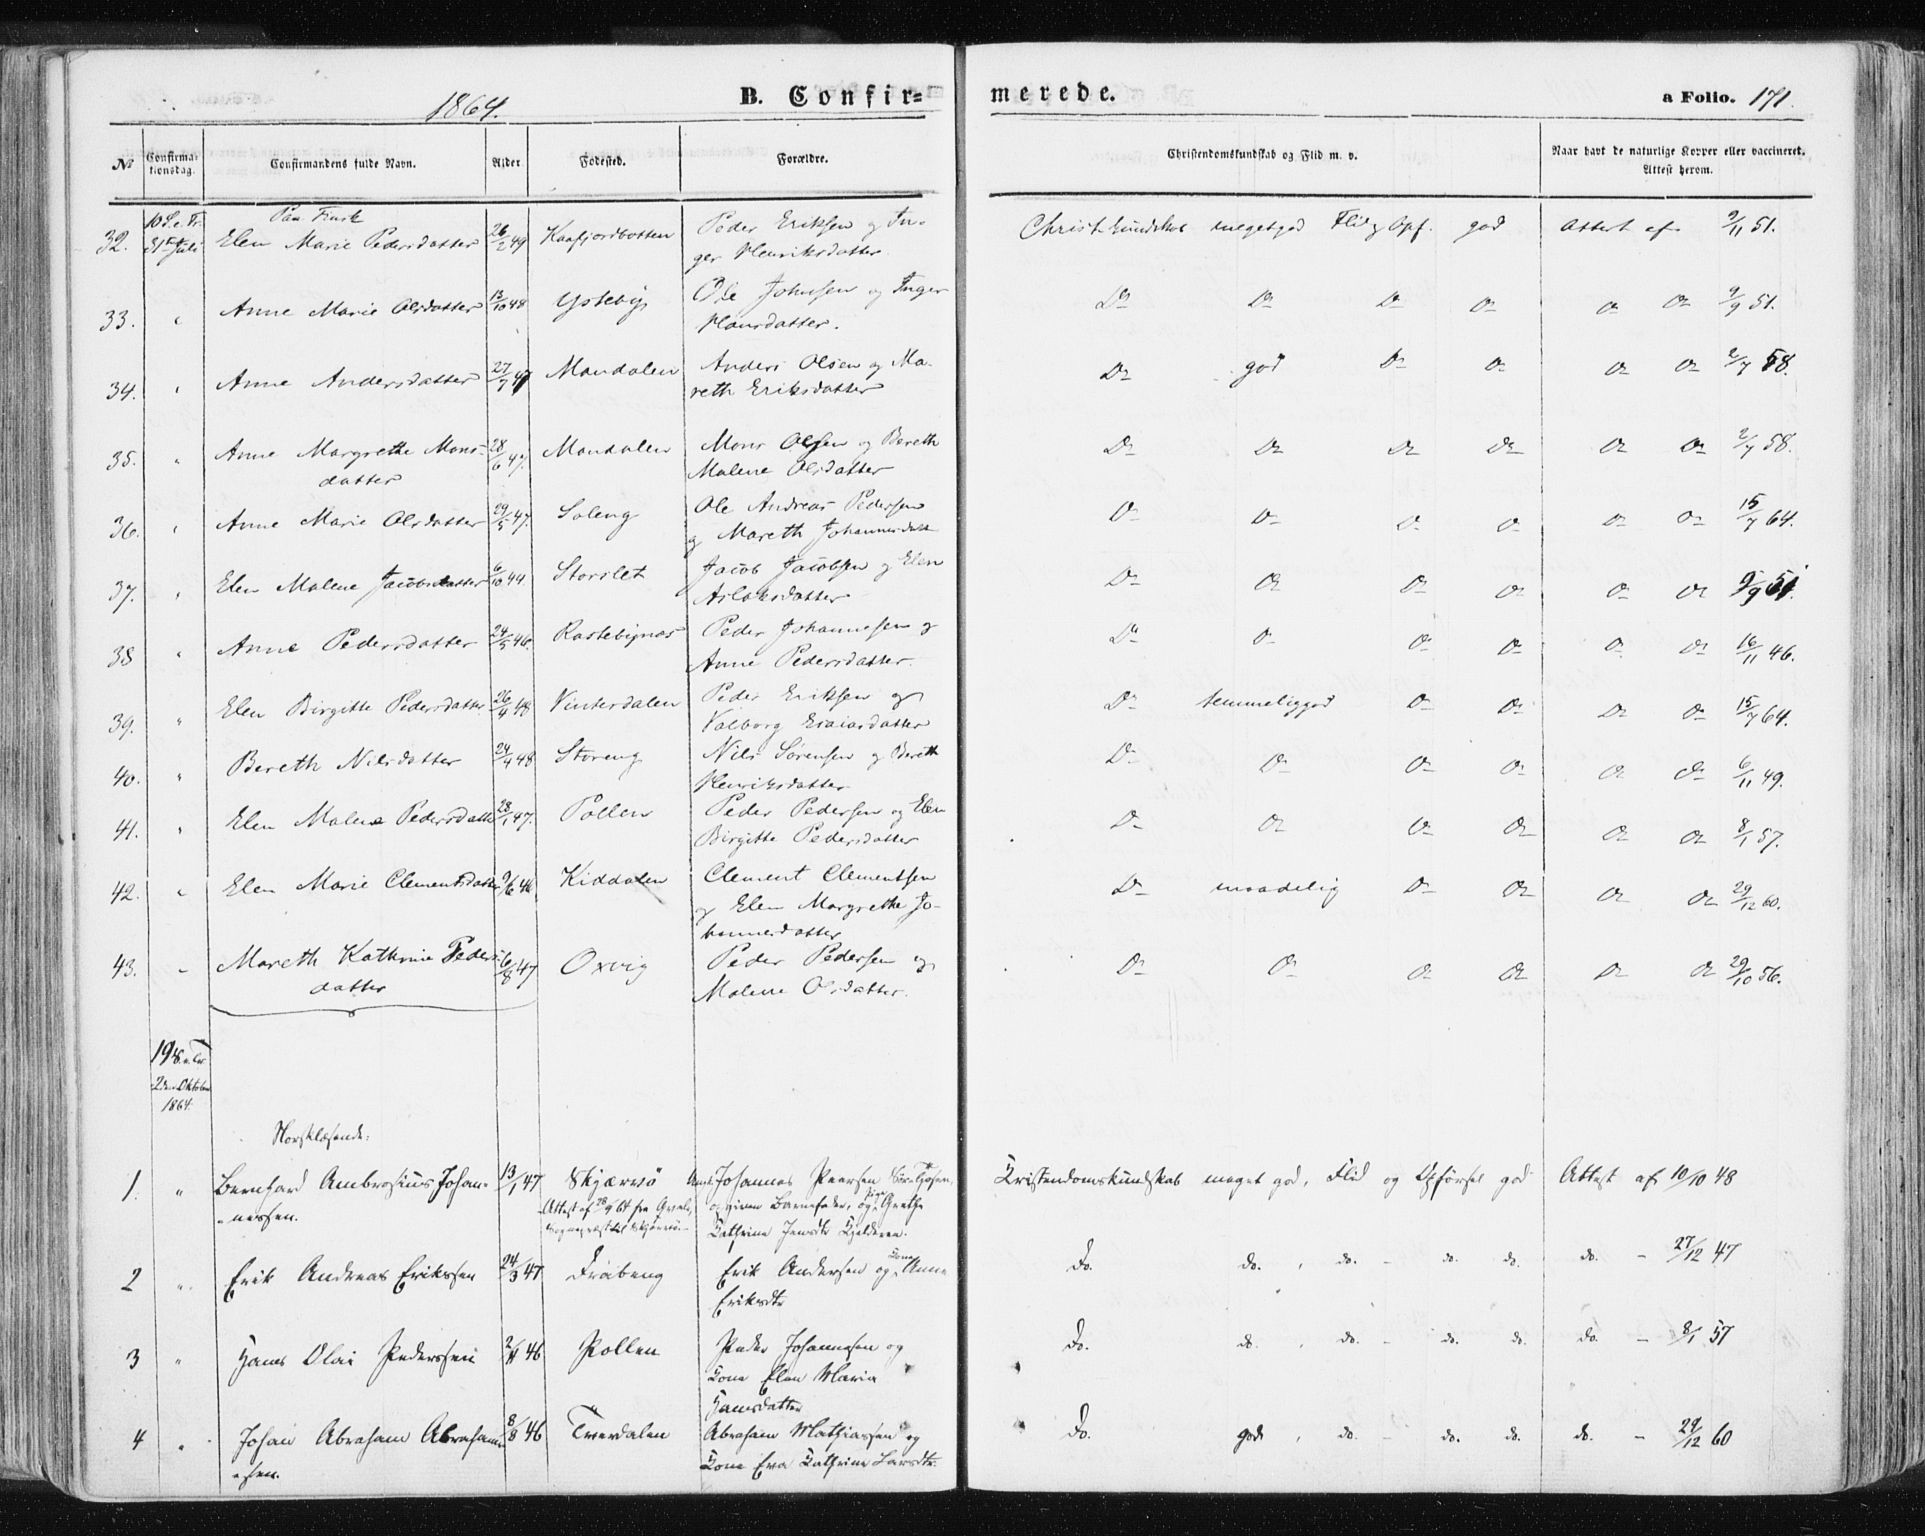 1864.
B. Confir=
merede.
a Folio. 171.
No
Confirmationsdag.
Confirmandens fulde Navn.
Alder
Fødested.
Forældre.
Christendomskundskab og Flid m. v.
Naar havt de naturlige Kopper eller vaccineret. Attest herom.
10 S. e. Tr. Paa Finsk
32. 31te Juli Elen Marie Pedersdatter 26/2 49 Kaafjordbotten Peder Eriksen og In- Christ. kundskab megetgod Flid og Opf. god Attest af 9/11 51.
ger Henriksdatter
33. " Anne Marie Olsdatter 13/10 48 Ysteby Ole Johnsen og Inger Do Do Do Do Do Do 9/9 51.
Hansdatter.
34. " Anne Andersdatter 27/7 47 Mandalen Anders Olsen og Ma- Do god Do Do Do Do 2/7 58.
reth Eriksdatter
35. " Anne Margrethe Mons- 28/6 47. Mandalen Mons Olsen og Bereth Do Do Do Do Do Do 2/7 58.
datter Malene Olsdatter
36. " Anne Marie Olsdatter 29/5 47. Soleng Ole Andreas Pedersen Do Do Do Do Do Do 15/7 64.
og Mareth Johannesdatt
37. " Elen Malene Jacobsdatter 6/10 44 Storslet Jacob Jacobsen og Elen Do Do Do Do Do Do 9/9 51.
Aslaksdatter
38 " Anne Pedersdatter 24/5 46. Rastebynæs Peder Johannesen og Do Do Do Do Do Do 16/11 46.
Anne Pedersdatter.
39. " Elen Birgitte Pedersdatter 26/4 48 Vinterdalen Peder Eriksen og Do temmeliggod Do Do Do Do 15/7 64.
Valborg Esaiasdatter
40. " Bereth Nilsdatter 24/4 48 Storeng Nils Sørensen og Bereth Do Do Do Do Do Do 6/11 49.
Henriksdatter
41. " Elen Malene Pedersdatter 28/1 47. Pollen Peder Pedersen og Elen Do Do Do Do Do Do 8/1 57.
Birgitte Pedersdatter
42. " Elen Marie Clementsdatter 9/6 46 Kiddalen Clement Clementsen Do maadelig Do Do Do Do 29/12 60.
og Elen Margrethe Jo-
hannesdatter
43. " Mareth Kathrine Peders- 6/8 47 Oxvig Peder Pedersen og Do Do Do Do Do Do 29/10 56.
datter Malene Olsdatter.
19 S. e. Tr.
2den Oktober
1864.
Norsklæsende:
1. " Bernhard Ambrosius Johan- 13/1 47 Skjærvø Johannes Peersen Kristendomskundskab meget god, Flid og Opførsel god Attest af 10/10 48
-nessen. Attest af 28/9 64 fra og given Barnefader, og Pige Grethe
til Skjærvø.- Kathrine Jensdtr
2 " Erik Andreas Erikssen 24/3 47 Erik Andersen og Kone Anne Do. do. , do. - do. do. do. - 27/12 47
Eriksdtr
3 " Hans Olai Pederssen 2/11 46 Pollen Peder Johannesen og Do. do. , do. - do. do. do. - 8/1 57
Kone Elen Maria
Hansdatter
4 " Johan Abraham Abraham- 8/8 46 Tverdalen Abraham Mathiassen og Do. god , do. - do. do. do. - 29/12 60
-sen. Kone Eva Kathrine Larsdtr.